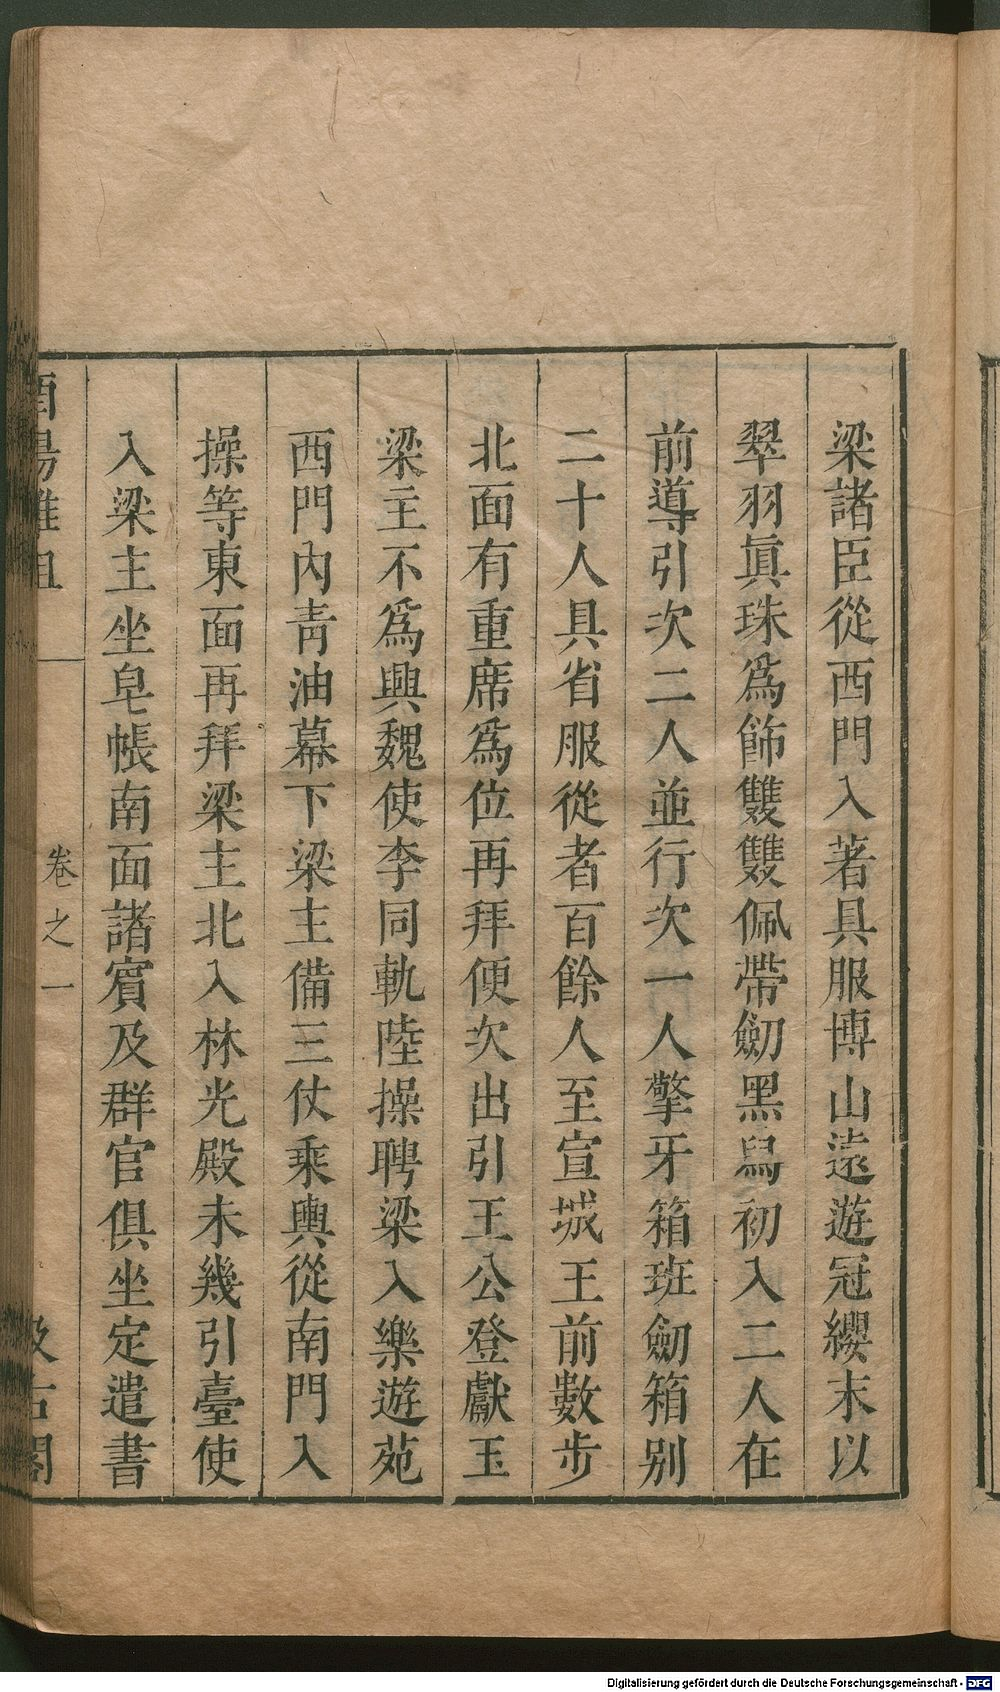 梁諸臣從西門入著具服博山遠遊冠纓末以
翠羽眞珠爲飾雙雙佩帶劒黑舃初入二人在
前導引次二人並行次一人擎牙箱班劒箱别
二十人具省服從者百餘人至宣城王前數步
北面有重席爲位再拜便次出引王公登獻玉
梁主不爲興魏使李同軌陸操聘梁入樂遊苑
西門內靑油幕下梁主備三仗乘輿從南門入
操等東面再拜梁主北入林光殿未幾引臺使
入梁主坐皂帳南面諸賓及群官俱坐定遣書
酉陽雜俎
卷之一
汲古閣
Digitalisierung gefördert durch die Deutsche Forschungsgemeinschaft - DFG